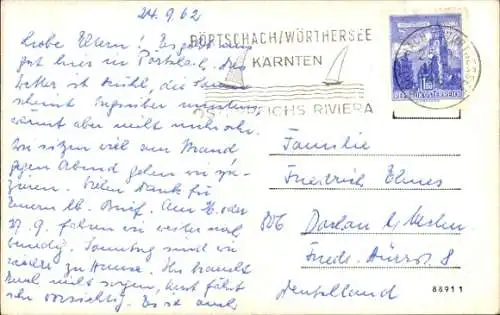 24.9.62
Liebe Eltern! Es geht uns
gut hier in Pörtschach. Das
Wetter ist kühl, die Sonne
scheint
wärmt aber nicht mehr sehr.
Wir sitzen viel am Strand
gegen Abend gehen wir spa-
zieren. Vielen Dank für
Euern lb. Brief. Am 26. oder
27.9. fahren wir weiter nach
Venedig. Sonntag sind wir
wieder zu Hause. Ihr braucht
Euch nicht sorgen, Kurt fährt
sehr vorsichtig. Es ist auch
PÖRTSCHACH/WÖRTHERSEE
KÄRNTEN
ÖSTERREICHS RIVIERA
Familie
Friedrich
806 Dachau b/München
Friedr. 8
Deutschland
88911